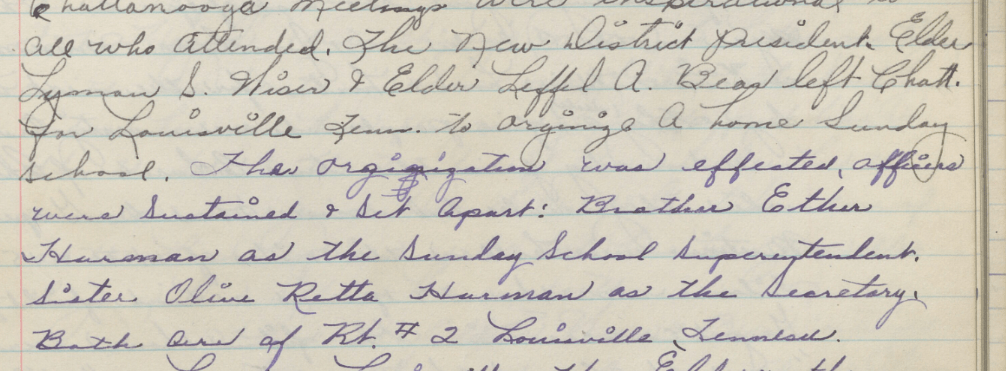 Chattanooga Meetings were inspirational to
all who attended. The New District president Elder
Lyman S. Wiser & Elder Leffel A. Bean left Chatt.
for Louisville Tenn. to orginize A home Sunday
School. The orginization was effected, officers
were Sustained & Set Apart: Brother Ether
Harman as the Sunday School Superentendent.
Sister Olive Retta Harman as the Secretary.
Both are of Rt. # 2 Louisville, Tennessee.